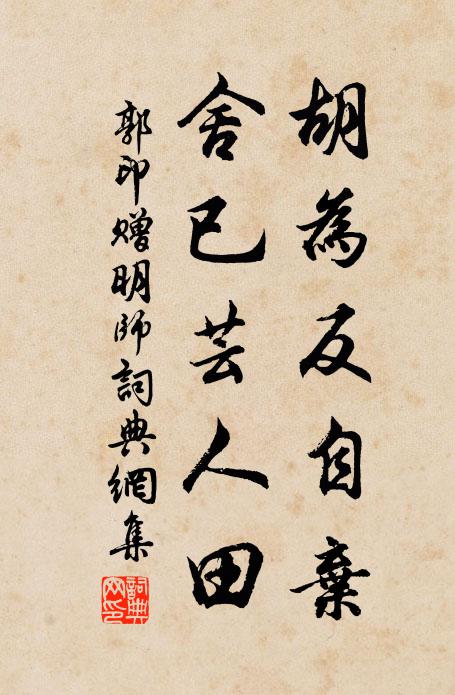 胡為反自棄
舍已芸人田
郭印贈明師詞典網集
詞典網印